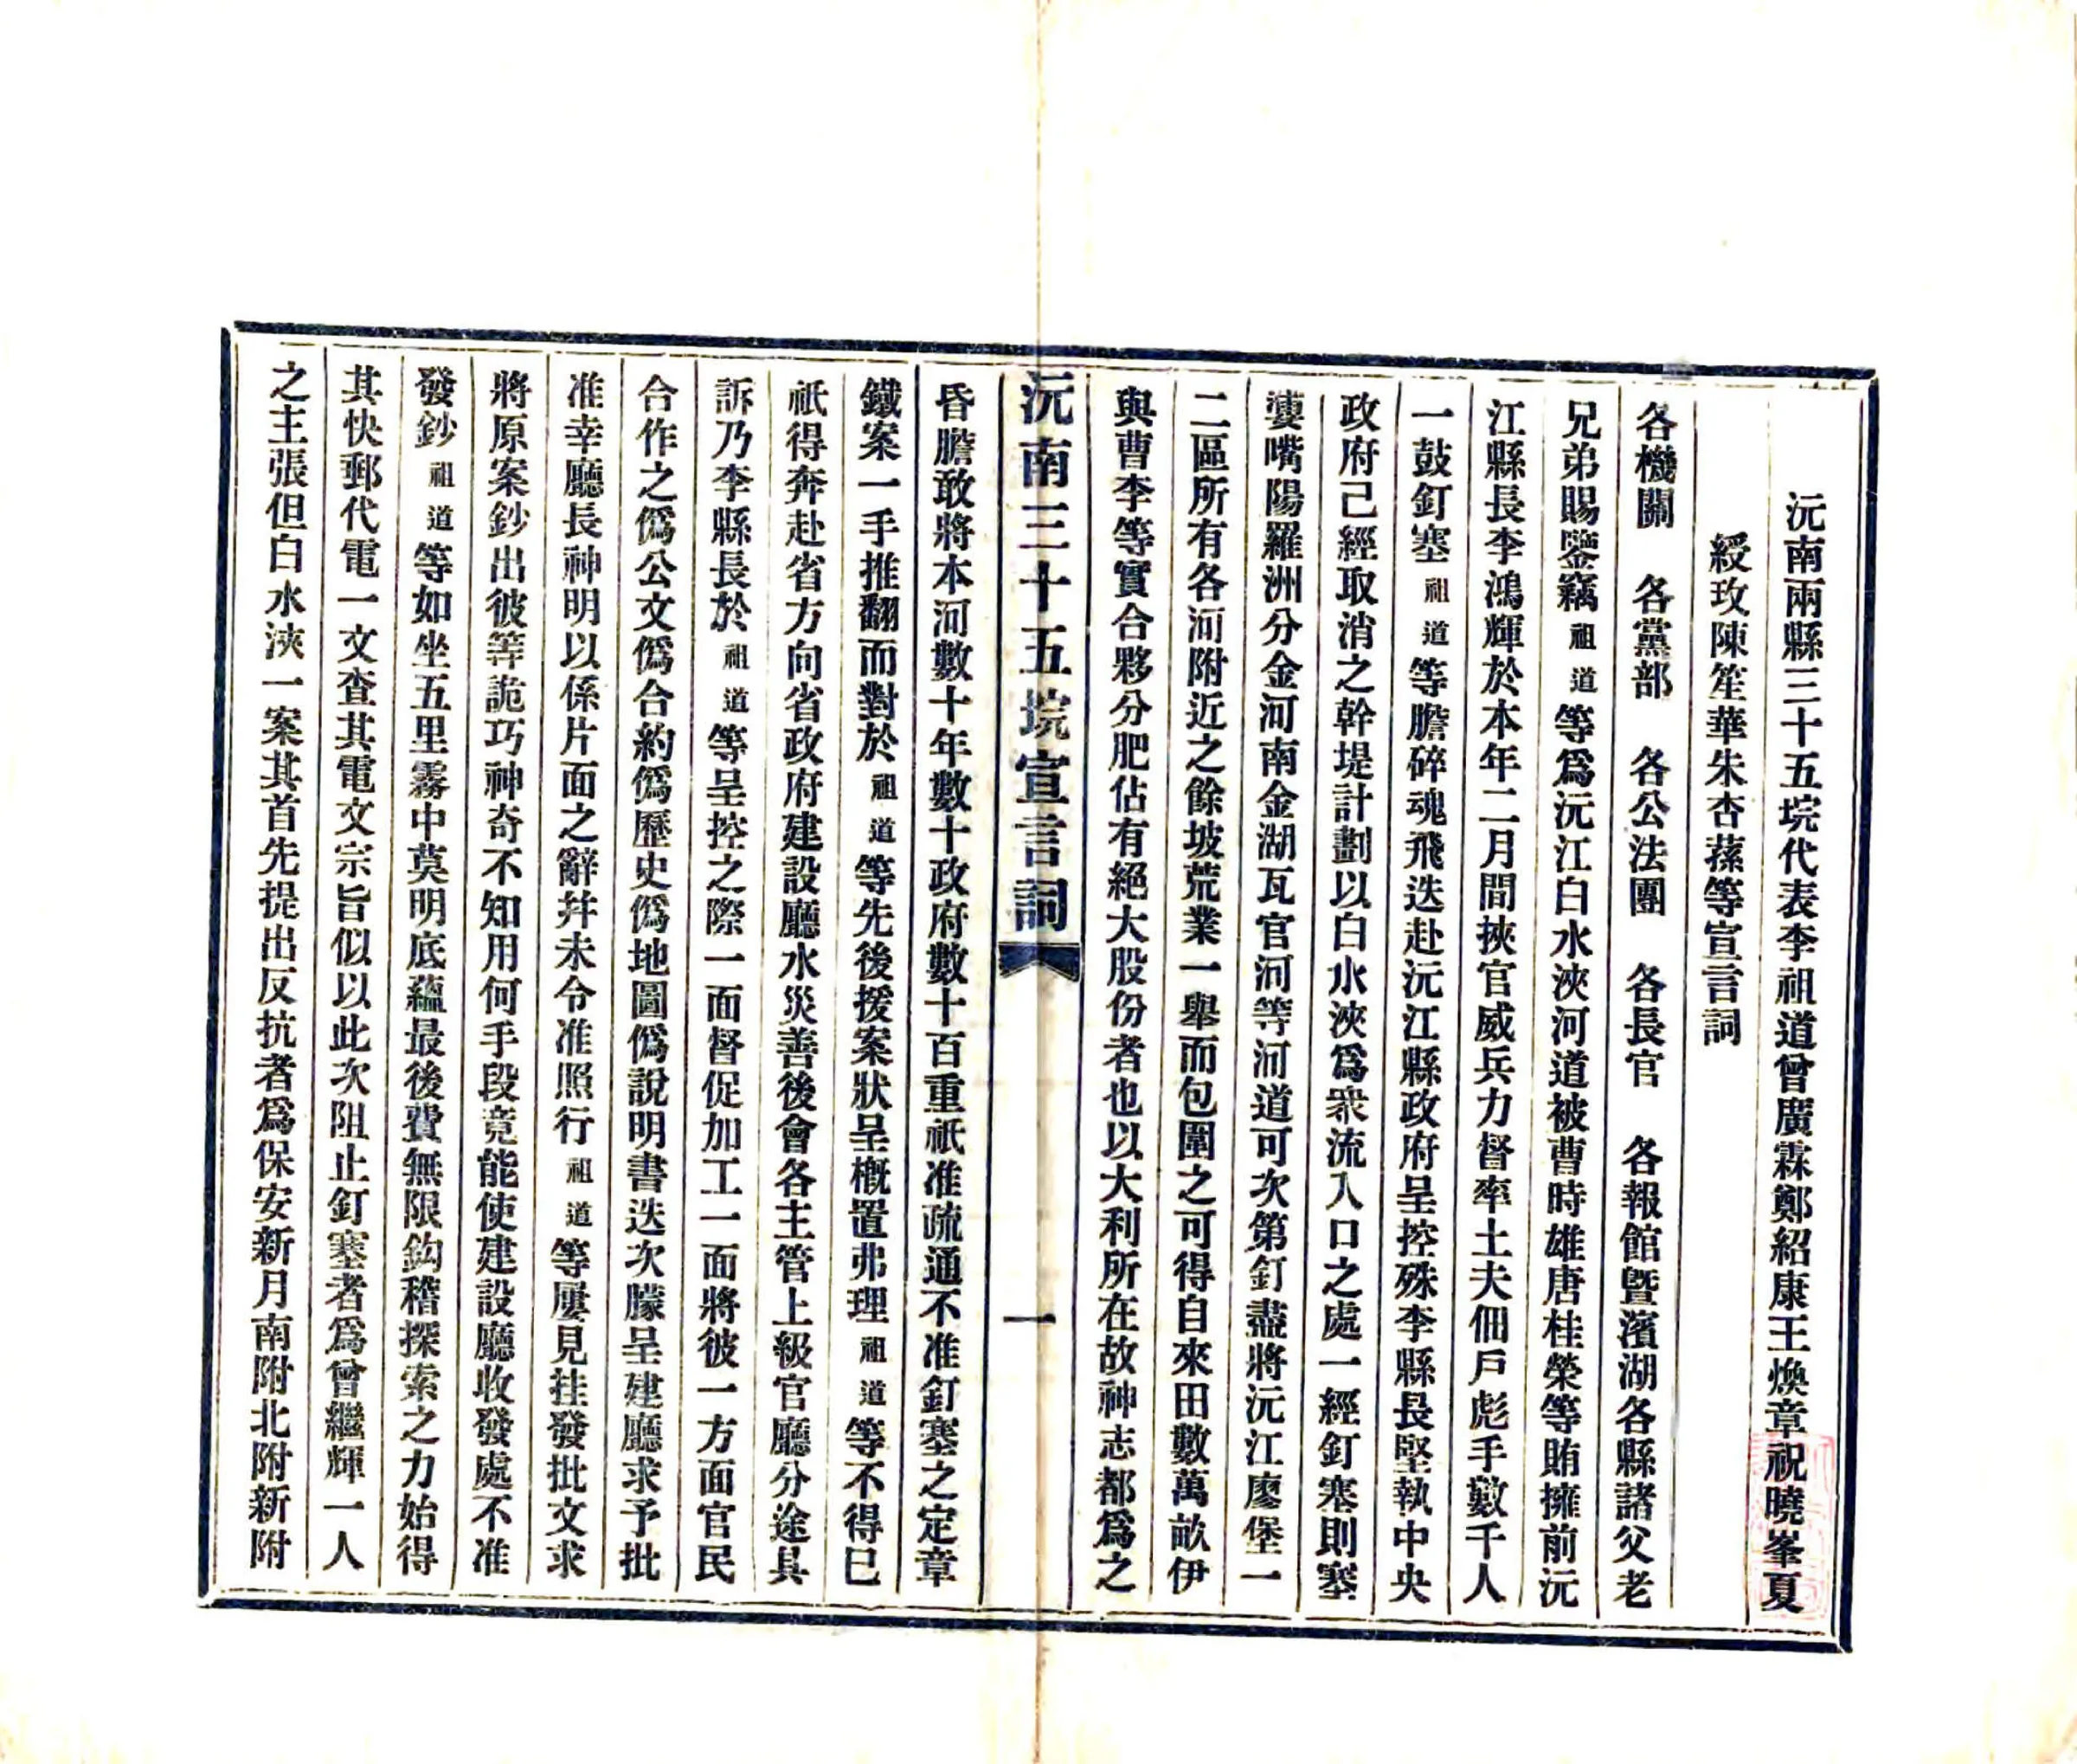 沅南兩縣三十五垸代表李祖道曾廣霖鄭紹康王煥章祝曉峯夏
綬玫陳笙華朱杏蓀等宣言詞
各機關　各黨部　各公法團　各長官　各報館暨濱湖各縣諸父老
兄弟賜鑒竊祖道等爲沅江白水浹河道被曹時雄唐桂榮等賄擁前沅
江縣長李鴻輝於本年二月間挾官威兵力督率土夫佃戶彪手數千人
一鼓釘塞祖道等膽碎魂飛迭赴沅江縣政府呈控殊李縣長堅執中央
政府己經取消之幹堤計劃以白水浹爲衆流入口之處一經釘塞則塞
婁嘴陽羅洲分金河南金湖瓦官河等河道可次第釘盡將沅江廖堡一
二區所有各河附近之餘坡荒業一舉而包圍之可得自來田數萬畝伊
與曹李等實合夥分肥佔有絕大股份者也以大利所在故神志都爲之
沅南三十五垸宣言詞　一
昏膽敢將本河數十年數十政府數十百重祇准疏通不准釘塞之定章
鐵案一手推翻而對於祖道等先後援案狀呈槪置弗理祖道等不得已
祇得奔赴省方向省政府建設廳水災善後會各主管上級官廳分途具
訴乃李縣長於祖道等呈控之際一面督促加工一面將彼一方面官民
合作之僞公文僞合約僞歷史僞地圖僞說明書迭次朦呈建廳求予批
准幸廳長神明以係片面之辭幷未令准照行祖道等屢見挂發批文求
將原案鈔出彼等詭巧神奇不知用何手段竟能使建設廳收發處不准
發鈔祖道等如坐五里霧中莫明底蘊最後費無限鈎稽探索之力始得
其快郵代電一文查其電文宗旨似以此次阻止釘塞者爲曾繼輝一人
之主張但白水浹一案其首先提出反抗者爲保安新月南附北附新附